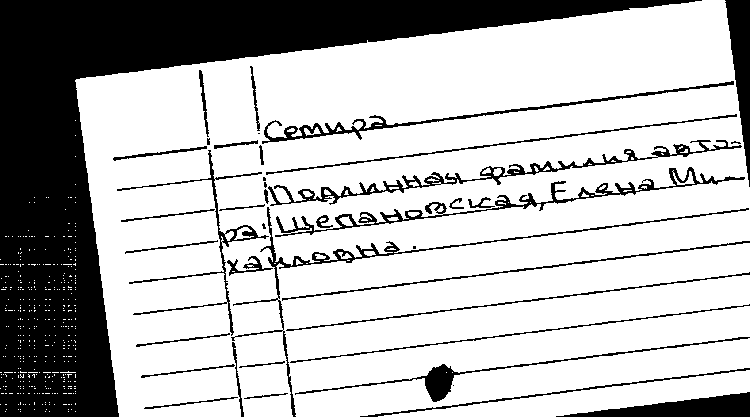 Семира.
Подлинная фамилия авто-
ра: Щепановская, Елена Ми-
хайловна.